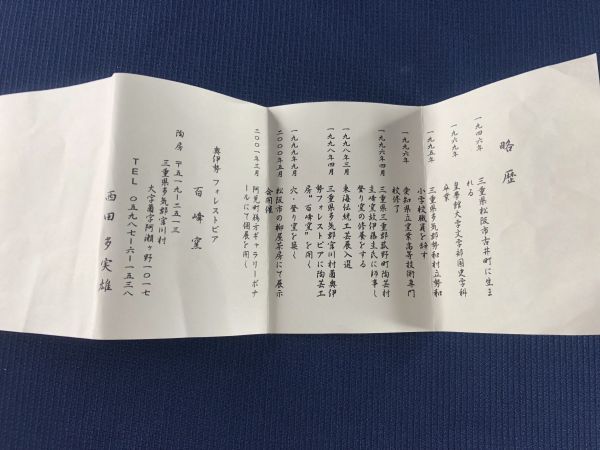 略歴
一九四六年
三重県松阪市古井町に生ま
れる
一九六九年
皇學館大学文学部国史学科
卒業
一九九五年
三重県多気郡勢和村立勢和
小学校職員を辞す
一九九六年
愛知県立窯業高等技術専門
校修了
三重県三重郡菰野町陶芸村
主峰窯故伊藤圭氏に師事し
登り窯の修養をする
一九九八年三月
東海伝統工芸展入選
一九九八年四月
三重県多気郡宮川村薗奥伊
勢フォレストピアに陶芸工
房"百峰窯"を開く
一九九九年九月
穴・登り窯を築く
二〇〇〇年五月
松阪市の柳屋茶房にて展示
会開催
二〇〇一年三月
阿児町鵜方ギャラリーボナ
ールにて個展を開く
奥伊勢フォレストピア
百峰窯
陶房 〒五一九-二五一三
三重県多気郡宮川村
大字薗字阿瀬ヶ野一〇一七
TEL 〇五九八七-六-一五三八
西田多実雄